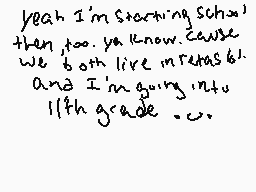 yeah I'm starting school
then, too. ya know. cause
we both live in retas lol.
and I'm going into
11th grade .u.